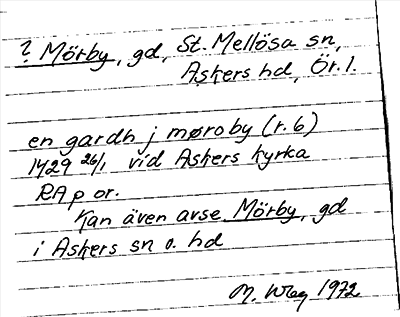 ? Mörby, gd, St. Mellösa sn,
Askers hd, Ör. l.
en gardh j møroby (r. 6)
1429 26/1 vid Askers kyrka
RA p or.
Kan även avse Mörby, gd
i Askers sn o. hd
M. Wbg 1972